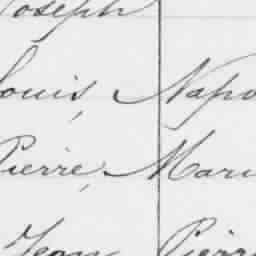 Joseph
Louis, Napo
Pierre, Mari
Jean Pierr